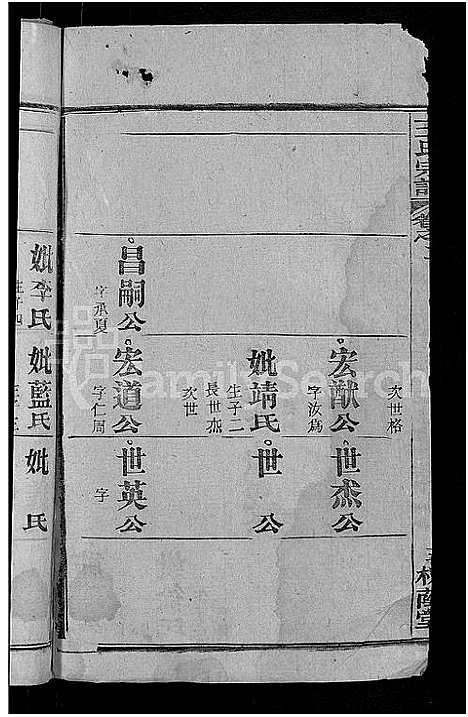 王氏宗譜
卷之
槐蔭堂
次世格
宏猷公
字汝爲
世杰公
妣靖氏
生子二
長世杰
次世
世 公
昌嗣公
字承夏
宏道公
字仁周
世英公
字
妣李氏
生子四
妣藍氏
妣 氏
FamilySearch